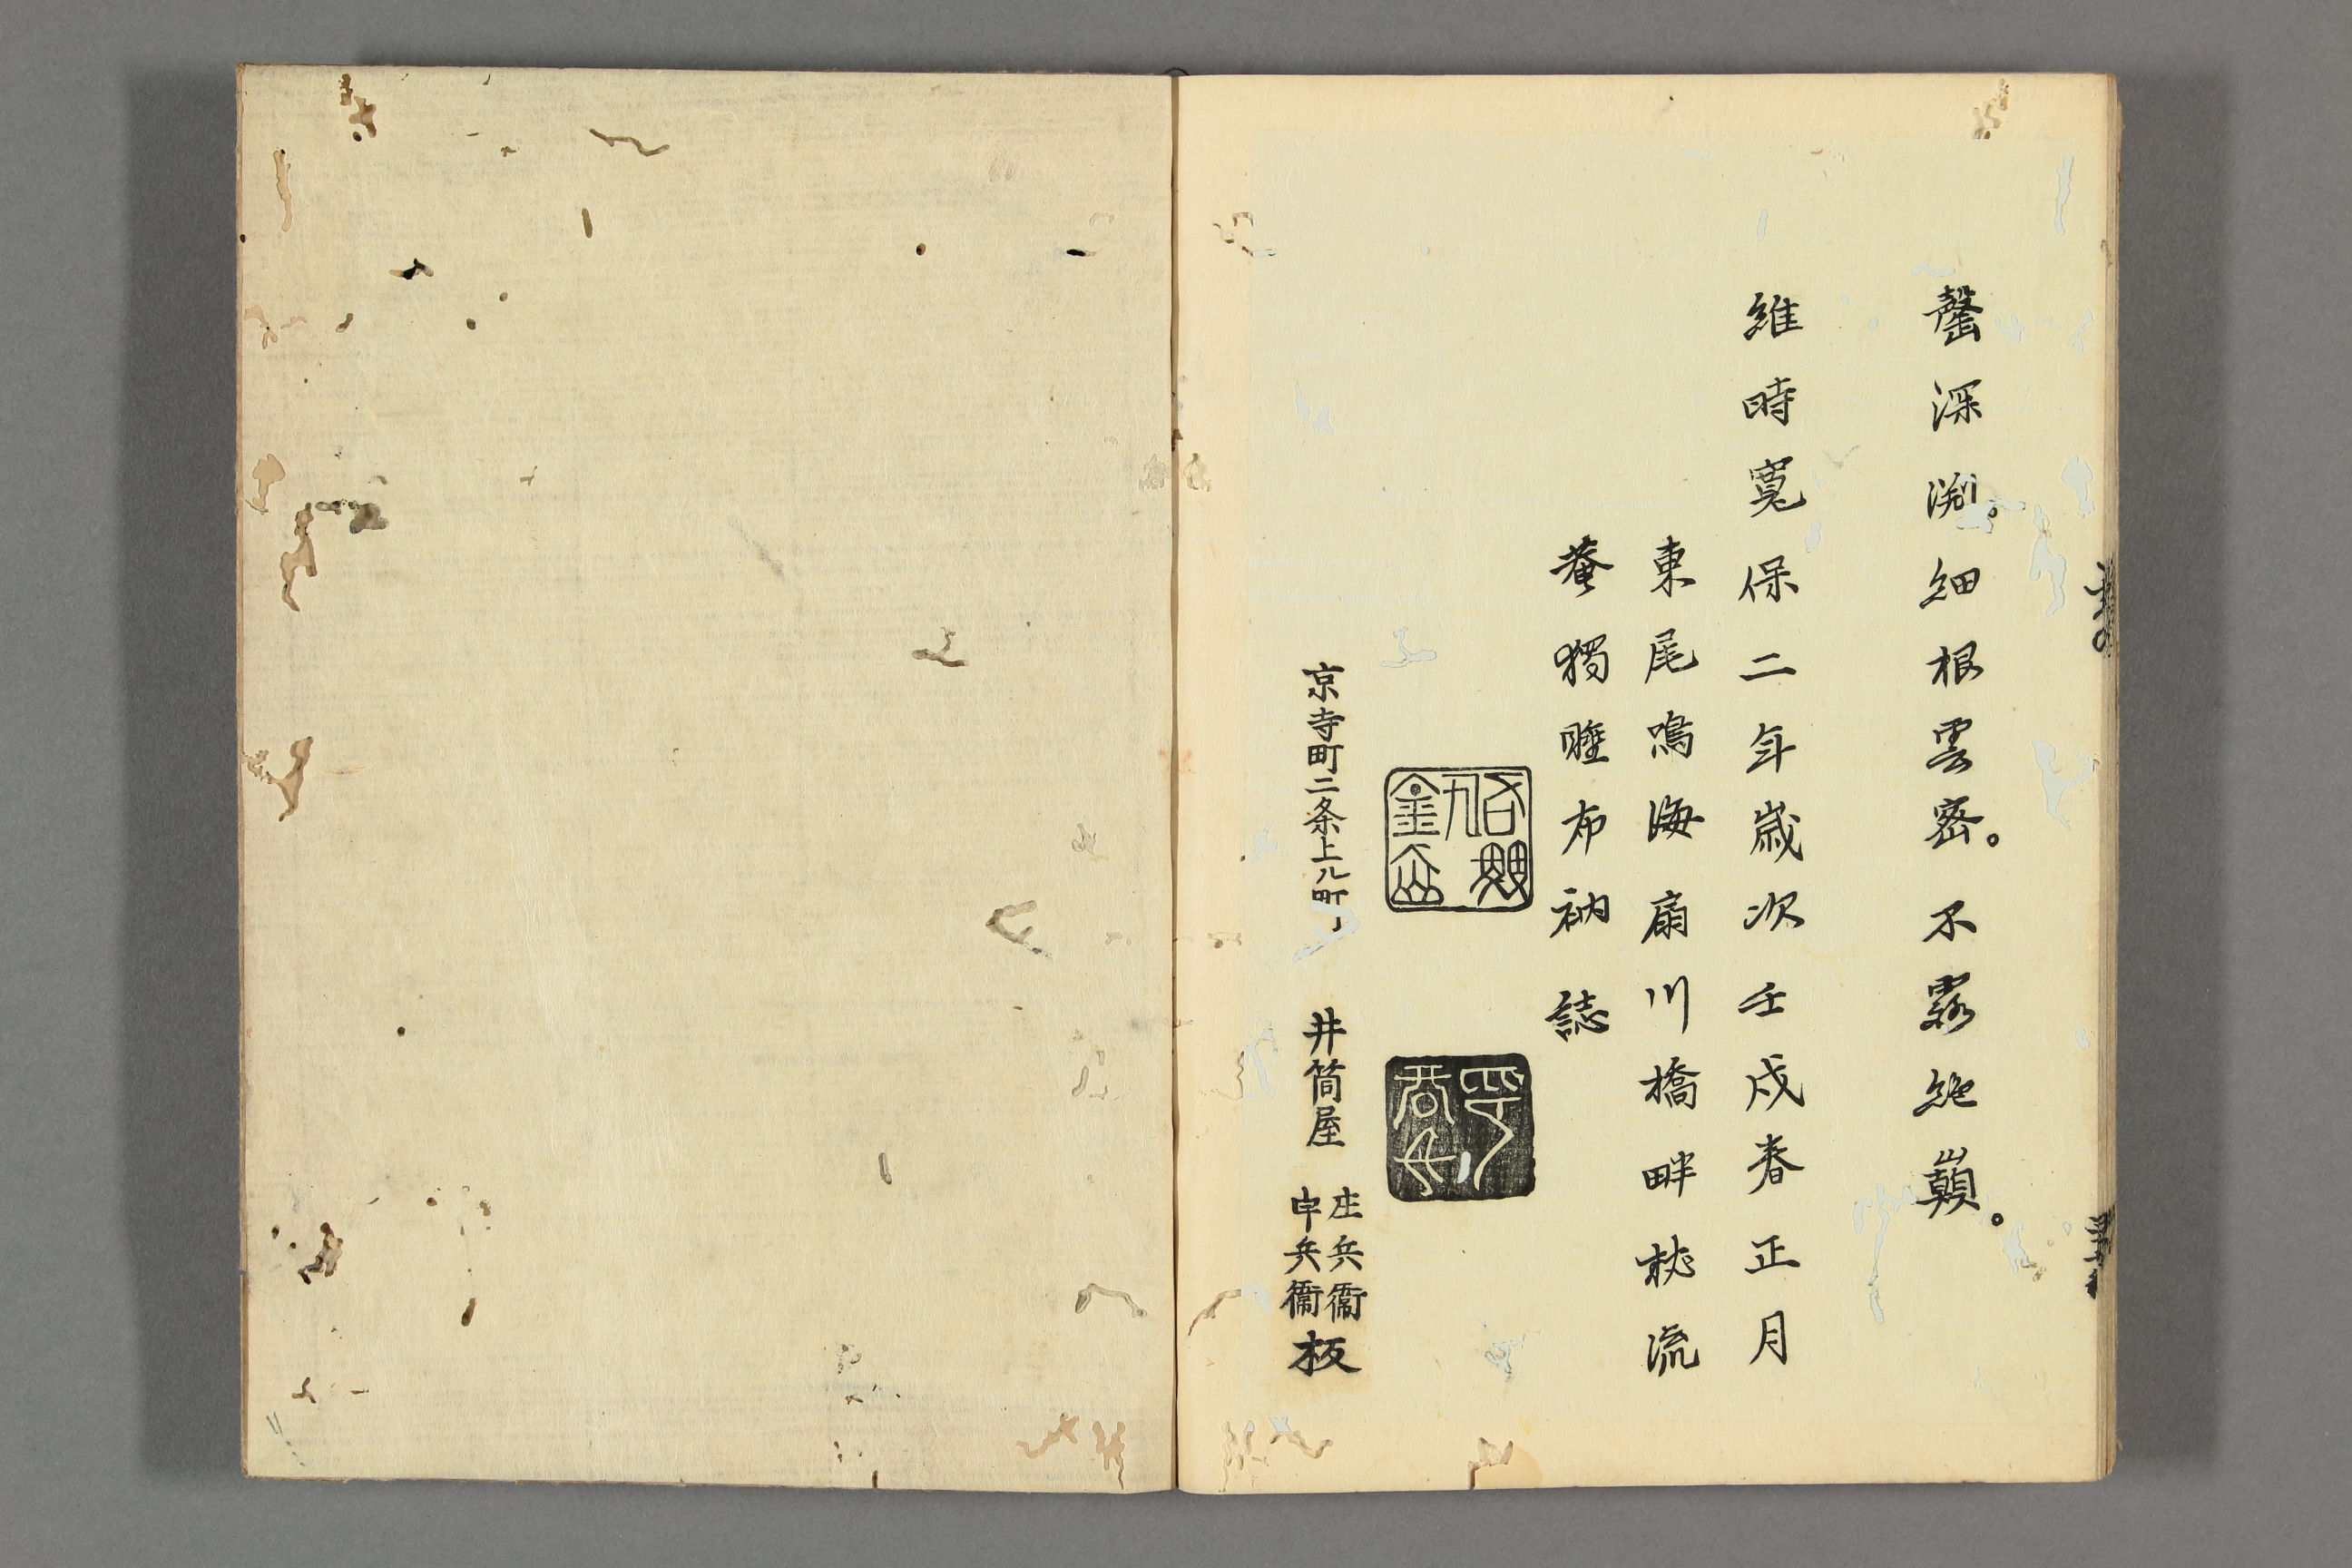 罄深淵。細根雲密。不露絶巓。
維時寬保二年歲次壬戌春正月
東尾鳴海扇川橋畔枕流
菴獨睡布衲誌
京寺町二条上ル町
井筒屋
庄兵衞
宇兵衞
板